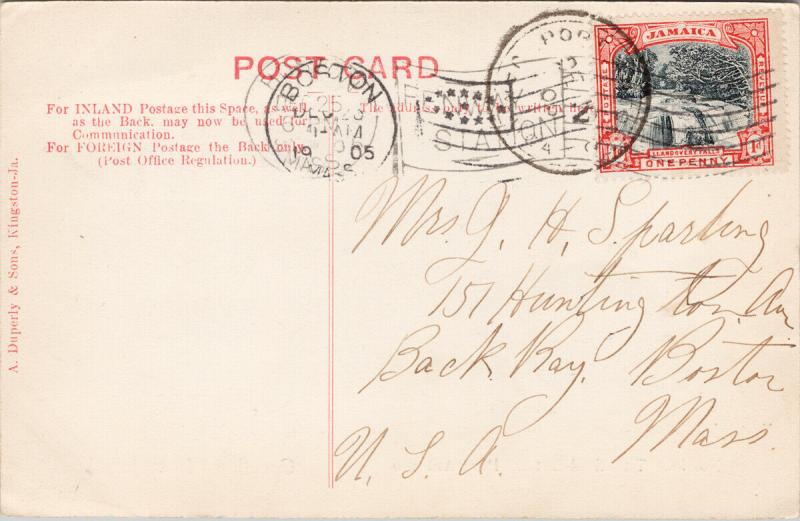 POST CARD
For INLAND Postage this Space, as well
as the Back, may now be used for
Communication.
For FOREIGN Postage the Back only
(Post Office Regulation.)
The address only to be written here
A. Duperly & Sons, Kingston-Ja.
BOSTON
DEC 25
MASS.
19 05
STA
JAMAICA
LLANDOVERY FALLS
1d ONE PENNY 1d
Mrs. J. H. Sparling
151 Huntington Av
Back Bay. Boston
Mass.
U. S. A.